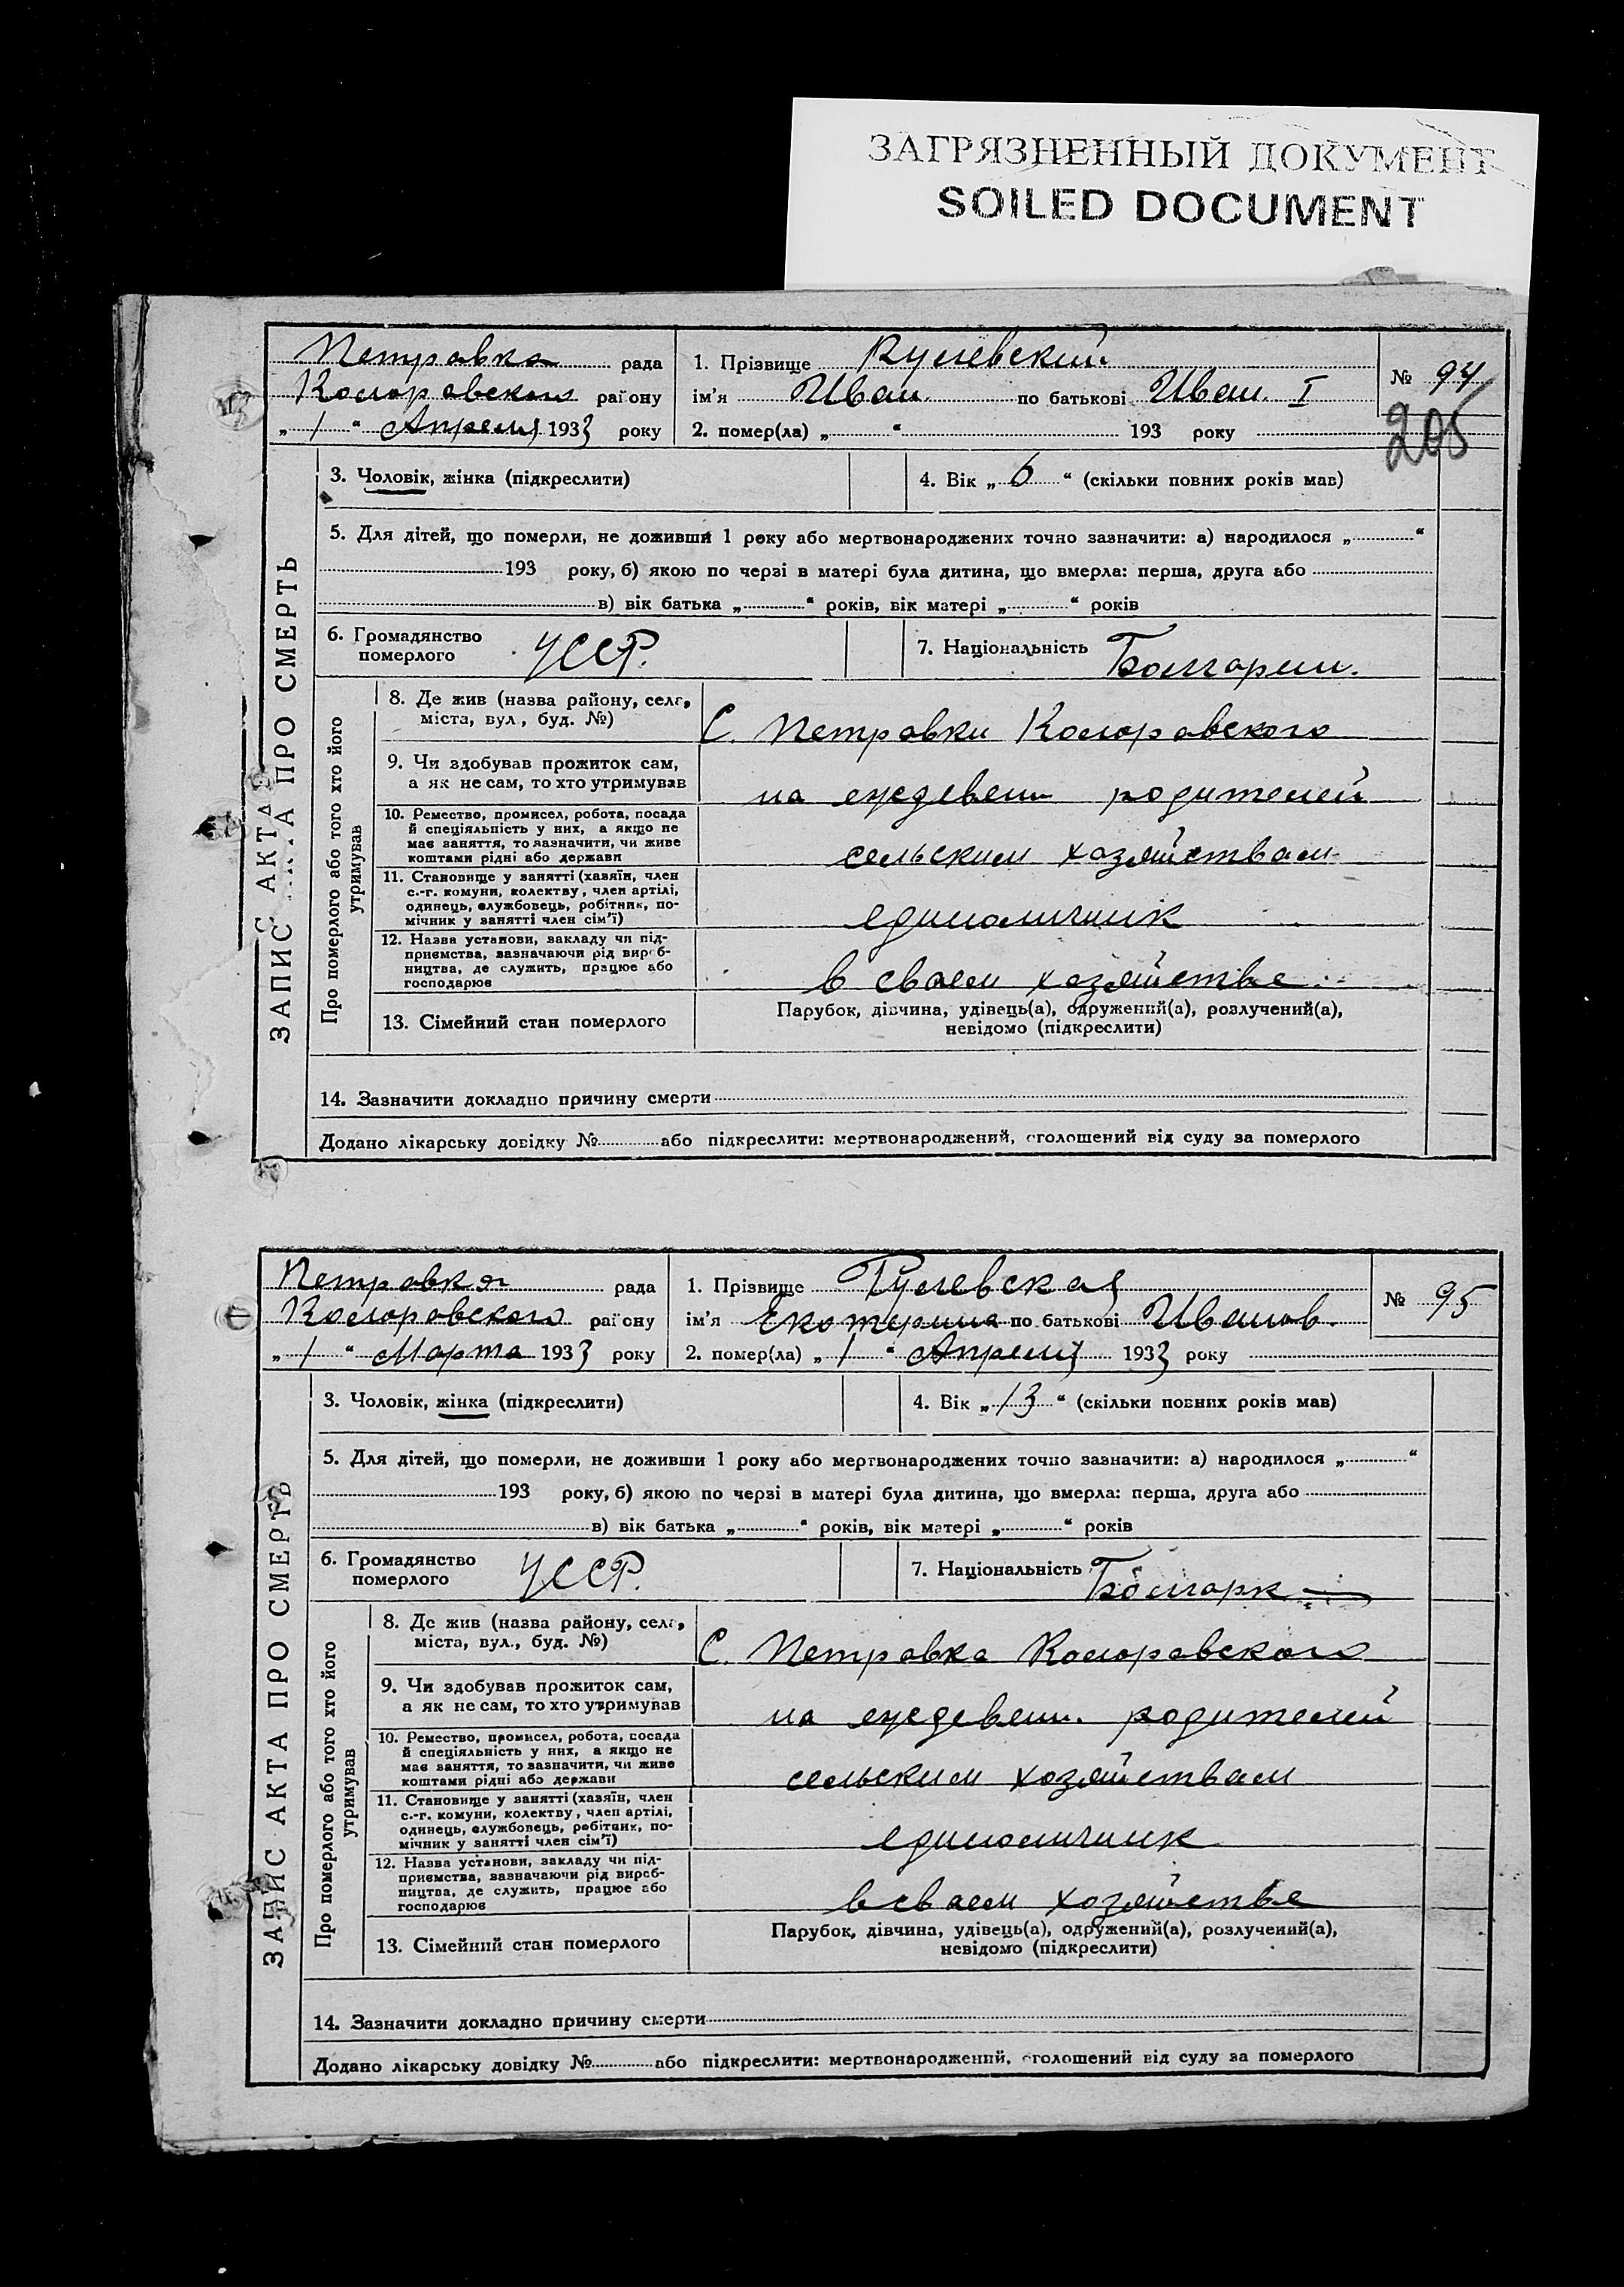 ЗАГРЯЗНЕННЫЙ ДОКУМЕНТ
SOILED DOCUMENT
Петравка рада
Коларовского району
„ 1 “ Апреля 1933 року
1. Прізвище
ім'я Иван. по батькові Иван. I
2. помер(ла) „ “ 193 року
№ 94
205
ЗАПИС АКТА ПРО СМЕРТЬ
3. Чоловік, жінка (підкреслити)
4. Вік „ 6 “ (скільки повних років мав)
5. Для дітей, що померли, не доживши 1 року або мертвонароджених точно зазначити: а) народилося „ “
193 року, б) якою по черзі в матері була дитина, що вмерла: перша, друга або
в) вік батька „ “ років, вік матері „ “ років
6. Громадянство
померлого
УССР.
7. Національність Болгарин.
Про померлого або того хто його
утримував
8. Де жив (назва району, села,
міста, вул., буд. №)
С. Петравки Коларавского
9. Чи здобував прожиток сам,
а як не сам, то хто утримував
на еждевен родителей
10. Ремество, промисел, робота, посада
й спеціяльність у них, а якщо не
має заняття, то зазначити, чи живе
коштами рідні або держави
сельским хазяйствам
11. Становище у занятті (хазяїн, член
с.-г. комуни, колектву, член артілі,
одинець, службовець, робітник, по-
мічник у занятті член сім'ї)
единаличник
12. Назва установи, закладу чи під-
приємства, зазначаючи рід вироб-
ництва, де служить, працює або
господарює
в сваем хазяйстве
13. Сімейний стан померлого
Парубок, дівчина, удівець(а), одружений(а), розлучений(а),
невідомо (підкреслити)
14. Зазначити докладно причину смерти
Додано лікарську довідку № або підкреслити: мертвонароджений, оголошений від суду за померлого
Петравка рада
Коларовского району
„ 1 “ Марта 1933 року
1. Прізвище
ім'я Екатерина по батькові Иванов.
2. помер(ла) „ 1 “ Апреля 1933 року
№ 95
ЗАПИС АКТА ПРО СМЕРТЬ
3. Чоловік, жінка (підкреслити)
4. Вік „ 13 “ (скільки повних років мав)
5. Для дітей, що померли, не доживши 1 року або мертвонароджених точно зазначити: а) народилося „ “
193 року, б) якою по черзі в матері була дитина, що вмерла: перша, друга або
в) вік батька „ “ років, вік матері „ “ років
6. Громадянство
померлого
УССР.
7. Національність Болгарк
Про померлого або того хто його
утримував
8. Де жив (назва району, села,
міста, вул., буд. №)
С. Петравка Коларавского
9. Чи здобував прожиток сам,
а як не сам, то хто утримував
на еждевен. родителей
10. Ремество, промисел, робота, посада
й спеціяльність у них, а якщо не
має заняття, то зазначити, чи живе
коштами рідні або держави
сельским хозяйствам
11. Становище у занятті (хазяїн, член
с.-г. комуни, колектву, член артілі,
одинець, службовець, робітник, по-
мічник у занятті член сім'ї)
единаличник
12. Назва установи, закладу чи під-
приємства, зазначаючи рід вироб-
ництва, де служить, працює або
господарює
в сваем хозяйстве
13. Сімейний стан померлого
Парубок, дівчина, удівець(а), одружений(а), розлучений(а),
невідомо (підкреслити)
14. Зазначити докладно причину смерти
Додано лікарську довідку № або підкреслити: мертвонароджений, оголошений від суду за померлого